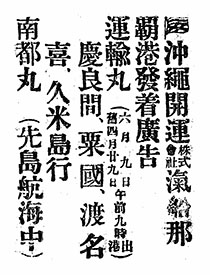 沖繩開運株式會社滊船那
覇港發着廣告
運輸丸(六月九日午前九時出港
舊四月廿九日)
慶良間、粟國、渡名
喜、久米島行
南都丸(先島航海中)